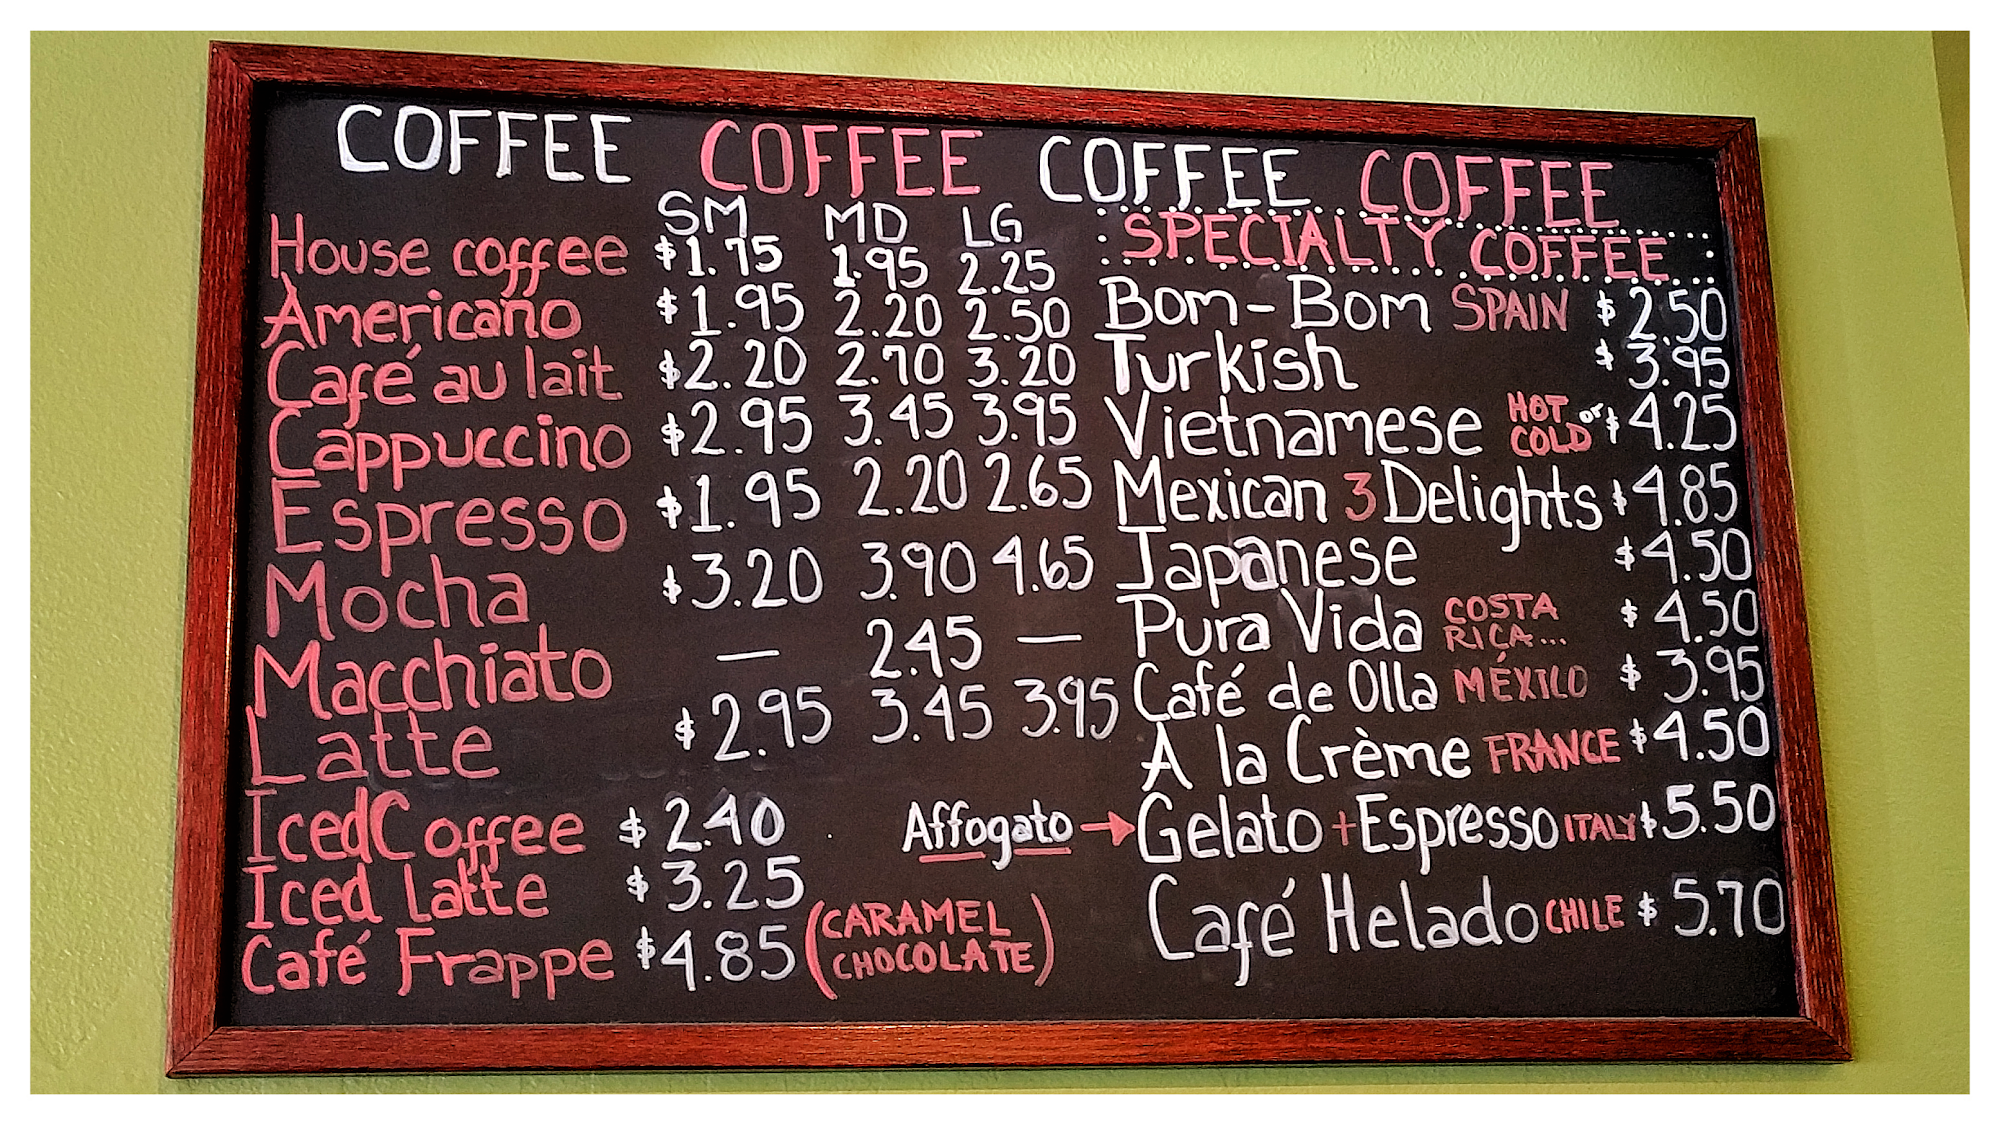 COFFEE COFFEE COFFEE COFFEE
SM MD LG
House coffee $1.75 1.95 2.25
Americano $1.95 2.20 2.50
Café au lait $2.20 2.70 3.20
Cappuccino $2.95 3.45 3.95
Espresso $1.95 2.20 2.65
Mocha $3.20 3.90 4.65
Macchiato — 2.45 —
Latte $2.95 3.45 3.95
Iced Coffee $2.40
Iced Latte $3.25
Café Frappe $4.85 (CARAMEL
CHOCOLATE)
SPECIALTY COFFEE
Bom-Bom SPAIN $2.50
Turkish $3.95
Vietnamese HOT or COLD $4.25
Mexican 3 Delights $4.85
Japanese $4.50
Pura Vida COSTA RICA... $4.50
Café de Olla MÉXICO $3.95
A la Crème FRANCE $4.50
Affogato → Gelato + Espresso ITALY $5.50
Café Helado CHILE $5.70